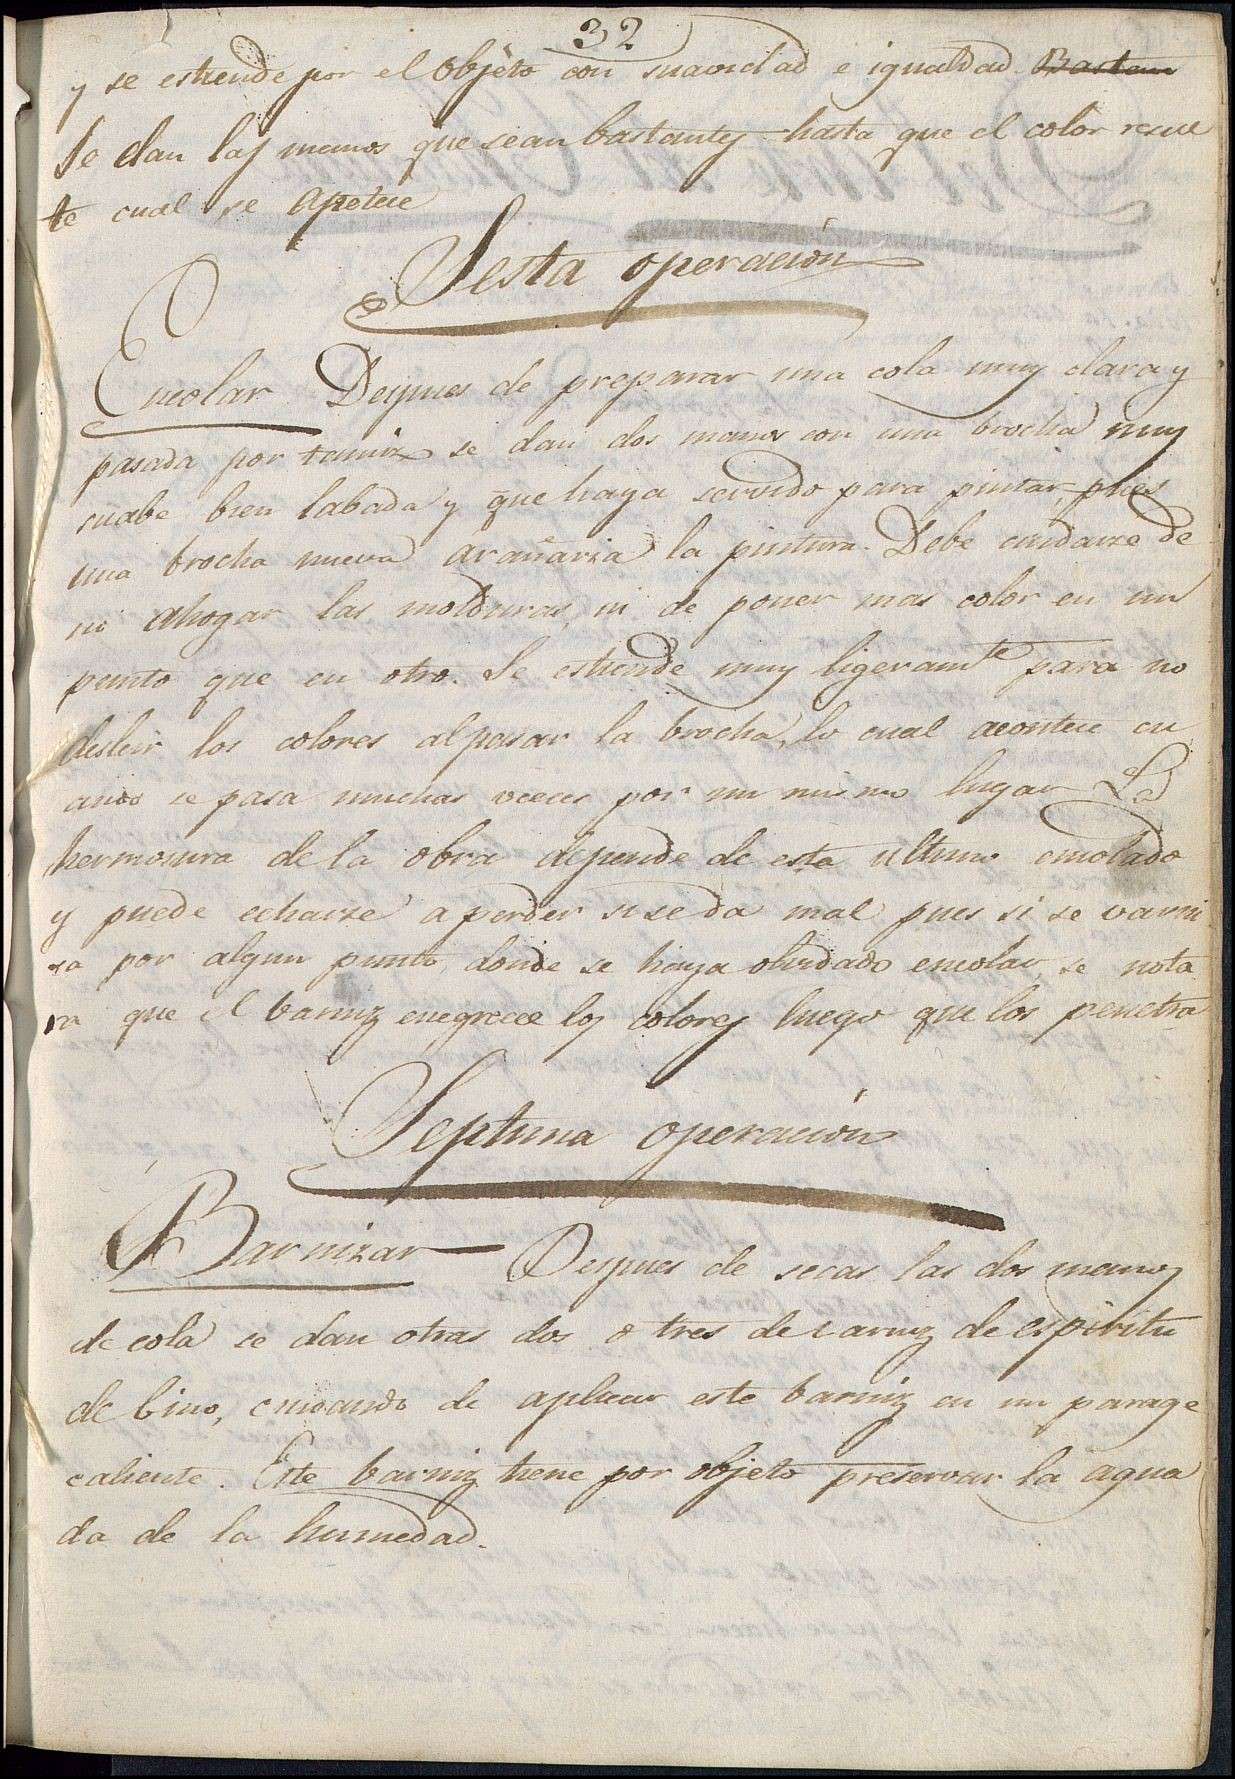 32
y se estiende por el objeto con suavidad e igualdad Bastan
Se dan las manos que sean bastantes hasta que el color resul
te cual se apetece
Sesta operación
Encolar Despues de preparar una cola muy clara y
pasada por tamiz se dan dos manos con una brocha muy
suabe bien labada y que haya servido para pintar, pues
una brocha nueva arañaria la pintura. Debe cuidarse de
no ahogar las molduras, ni de poner mas color en un
punto que en otro. Se estiende muy ligeramte para no
desleir los colores al pasar la brocha, lo cual acontece cu
ando se pasa muchas veces por un mismo lugar La
hermosura de la obra depende de este ultimo encolado
y puede echarse a perder si se da mal pues si se varni
sa por algun punto donde se haya olvidado encolar, se nota
ra que el barniz enegrece los colores luego que los penetra
Septima operación
Barnizar Despues de secas las dos manos
de cola se dan otras dos o tres de barniz de espiritu
de bino, cuidando de aplicar este barniz en un parage
caliente. Este barniz tiene por objeto preservar la agua
da de la humedad.